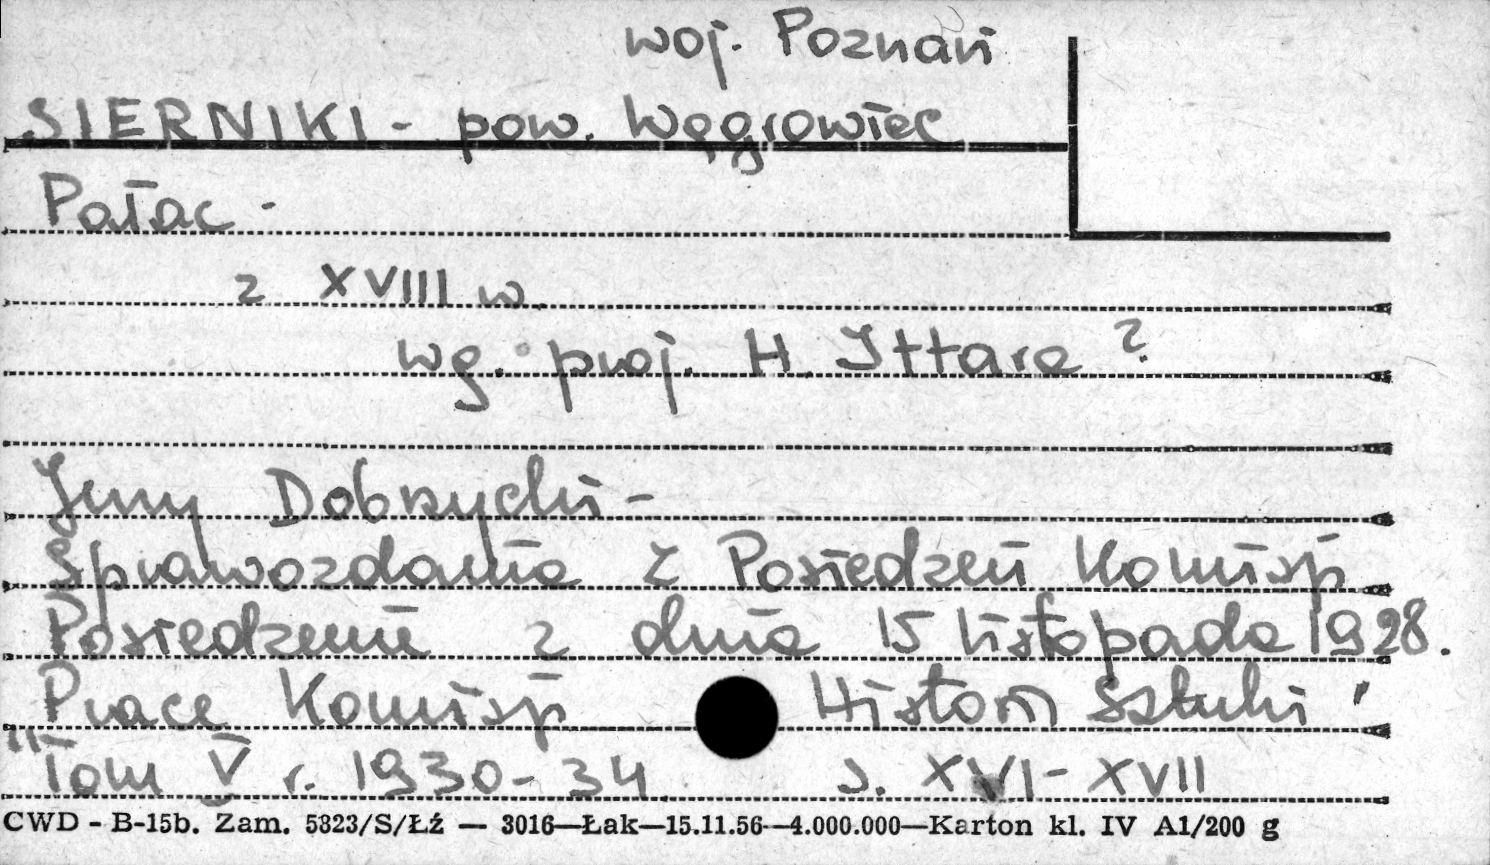 woj. Poznań
SIERNIKI - pow. Węgrowiec
Pałac -
z XVIII w.
wg. proj. H. Ittara ?
Jerzy Dobrzycki -
Sprawozdania z Posiedzeń Komisji
Posiedzenie z dnia 15 listopada 1928.
Prace Komisji Historii Sztuki "
Tom V r. 1930-34 s. XVI - XVII
CWD - B-15b. Zam. 5823/S/Łź — 3016—Łak—15.11.56—4.000.000—Karton kl. IV A1/200 g